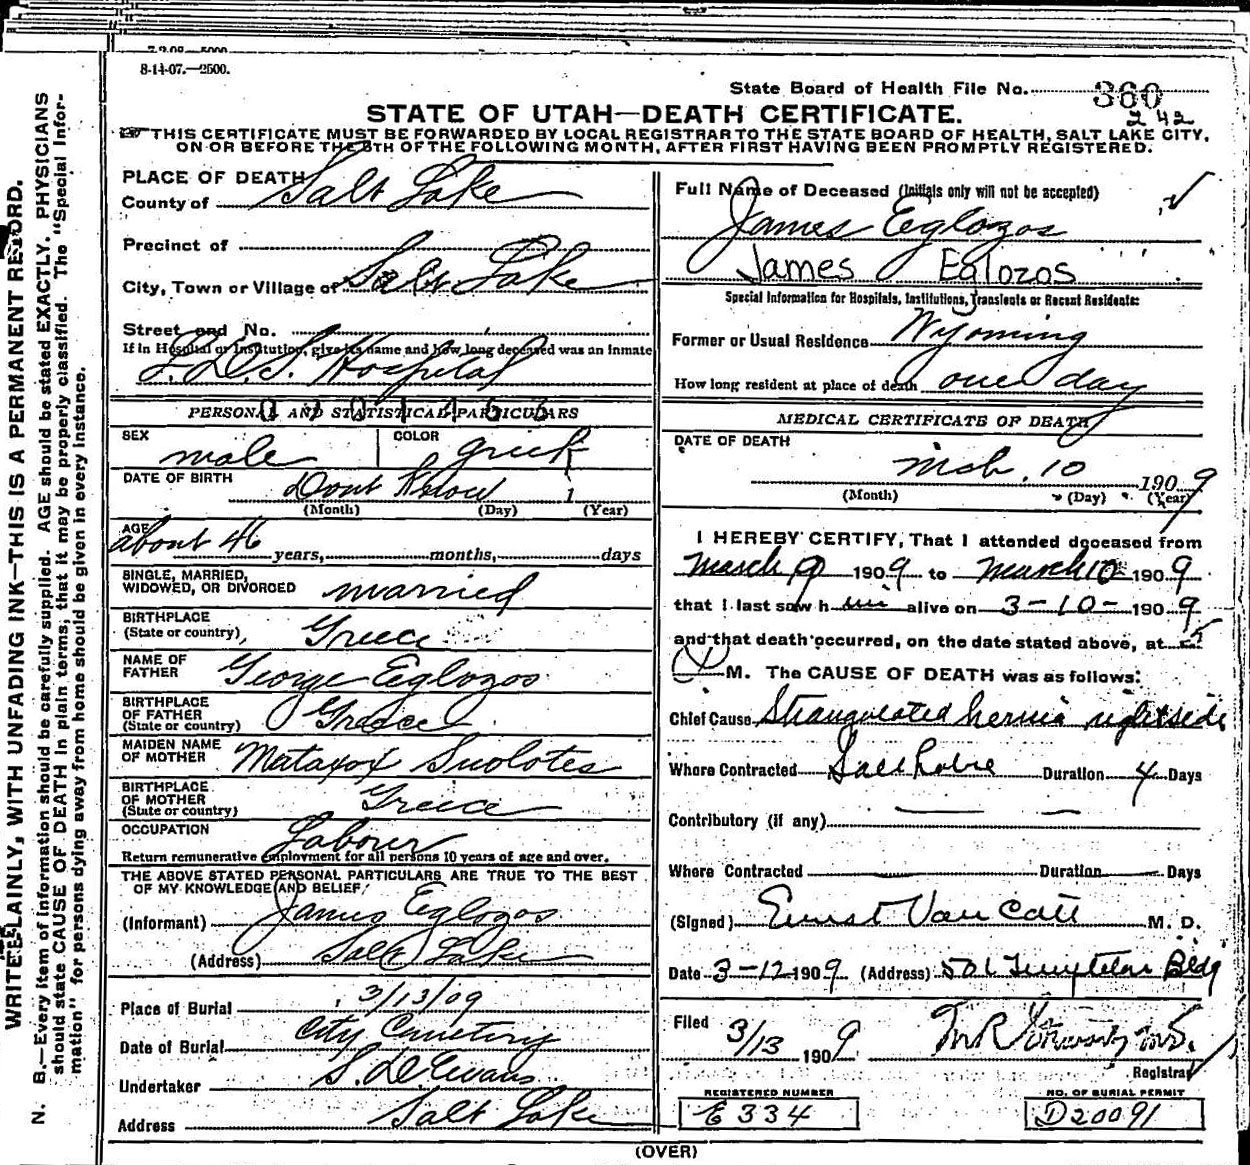 8-14-07.—2500.
State Board of Health File No. 360
242
STATE OF UTAH—DEATH CERTIFICATE.
THIS CERTIFICATE MUST BE FORWARDED BY LOCAL REGISTRAR TO THE STATE BOARD OF HEALTH, SALT LAKE CITY,
ON OR BEFORE THE 5TH OF THE FOLLOWING MONTH, AFTER FIRST HAVING BEEN PROMPTLY REGISTERED.
WRITE PLAINLY, WITH UNFADING INK—THIS IS A PERMANENT RECORD.
N. B.—Every item of information should be carefully supplied. AGE should be stated EXACTLY. PHYSICIANS
should state CAUSE OF DEATH in plain terms, that it may be properly classified. The "Special Infor-
mation" for persons dying away from home should be given in every instance.
PLACE OF DEATH
County of Salt Lake
Precinct of
City, Town or Village of Salt Lake
Street and No.
If in Hospital or Institution, give its name and how long deceased was an inmate
L.D.S. Hospital
PERSONAL AND STATISTICAL PARTICULARS
SEX male COLOR greek
DATE OF BIRTH Dont Know 1
(Month) (Day) (Year)
AGE about 46 years, months, days
SINGLE, MARRIED,
WIDOWED, OR DIVORCED married
BIRTHPLACE
(State or country) Greece
NAME OF
FATHER George Eglozos
BIRTHPLACE
OF FATHER
(State or country) Greece
MAIDEN NAME
OF MOTHER Suolotes
BIRTHPLACE
OF MOTHER
(State or country) Greece
OCCUPATION Labourer
Return remunerative employment for all persons 10 years of age and over.
THE ABOVE STATED PERSONAL PARTICULARS ARE TRUE TO THE BEST
OF MY KNOWLEDGE AND BELIEF
(Informant) James Eglozos
(Address) Salt Lake
Place of Burial 3/13/09
Date of Burial City Cemetery
Undertaker S. D. Evans
Address Salt Lake
Full Name of Deceased (Initials only will not be accepted)
James Eglozos
James Eglozos
Special Information for Hospitals, Institutions, Transients or Recent Residents:
Former or Usual Residence Wyoming
How long resident at place of death one day
MEDICAL CERTIFICATE OF DEATH
DATE OF DEATH
Mch. 10 1909
(Month) (Day) (Year)
I HEREBY CERTIFY, That I attended deceased from
March 9 1909 to March 10 1909
that I last saw him alive on 3-10- 1909
and that death occurred, on the date stated above, at 5
M. The CAUSE OF DEATH was as follows:
Chief Cause Strangulated hernia right side
Where Contracted Salt Lake Duration 4 Days
Contributory (if any)
Where Contracted Duration Days
(Signed) Ernst Van Cott M. D.
Date 3-12 1909 (Address) 501 Templeton Bldg
Filed 3/13 1909
Registrar
REGISTERED NUMBER
E 334
NO. OF BURIAL PERMIT
D20091
(OVER)